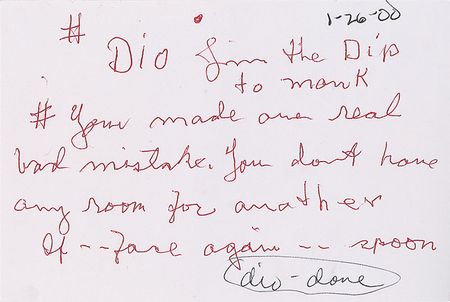 1-26-00
# Dio Jim the Dip
to monk
# You made one real
bad mistake. You don't have
any room for another
If -- fare again -- spoon
dio-done